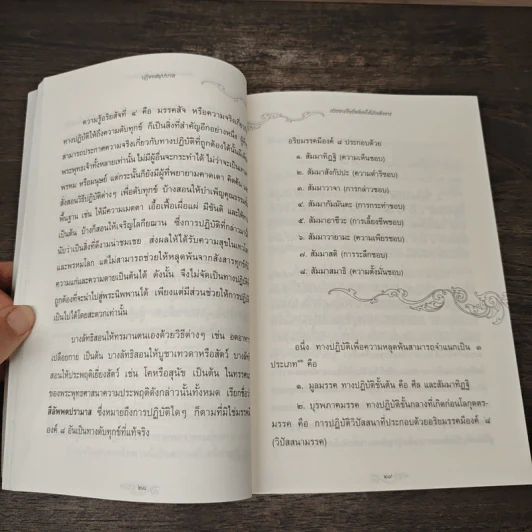 ปฏิจจสมุปบาท
ความรู้อริยสัจที่ ๔ คือ มรรคสัจ หรือความจริงเกี่ยว
ทางปฏิบัติให้ถึงความดับทุกข์ ก็เป็นสิ่งที่สำคัญอีกอย่างหนึ่ง
สามารถประกาศความจริงเกี่ยวกับทางปฏิบัติที่ถูกต้องได้นั้น
พระพุทธเจ้าทั้งหลายเท่านั้น ไม่มีผู้อื่นจะกระทำได้ ไม่ว่าจะเป็น
พรหม หรือมนุษย์ แต่กระนั้นก็ยังมีผู้ที่พยายามคาดเดา คิดค้น
สั่งสอนวิธีปฏิบัติต่างๆ เพื่อดับทุกข์ บ้างสอนให้บำเพ็ญคุณธรรม
พื้นฐาน เช่น ให้มีความเมตตา เอื้อเฟื้อเผื่อแผ่ มีขันติ และให้
เป็นต้น บ้างก็สอนให้เจริญโลกียฌาน ซึ่งการปฏิบัติที่กล่าวมา
นับว่าเป็นสิ่งที่ดีงามน่าชมเชย ส่งผลให้ได้รับความสุขใน
และพรหมโลก แต่ไม่สามารถช่วยให้หลุดพ้นจากสังสารทุกข์
ความแก่และความตายเป็นต้นได้ ดังนั้น จึงไม่จัดเป็นทางปฏิบัติ
ถูกต้องที่จะนำไปสู่พระนิพพานได้ เพียงแต่มีส่วนช่วยให้การปฏิบัติ
เป็นไปได้โดยสะดวกเท่านั้น
บางลัทธิสอนให้ทรมานตนเองด้วยวิธีต่างๆ เช่น อดอาหาร
เปลือยกาย เป็นต้น บางลัทธิสอนให้บูชาเทวดาหรือสัตว์ บาง
สอนให้ประพฤติเยี่ยงสัตว์ เช่น โคหรือสุนัข เป็นต้น ในทรรศนะ
ของพระพุทธศาสนาความประพฤติดังกล่าวนั้นทั้งหมด เรียกชื่อ
สีลัพพตปรามาส ซึ่งหมายถึงการปฏิบัติใดๆ ก็ตามที่มิใช่มรรค
องค์ ๘ อันเป็นทางดับทุกข์ที่แท้จริง
อริยมรรคมีองค์ ๘ ประกอบด้วย
๑. สัมมาทิฏฐิ (ความเห็นชอบ)
๒. สัมมาสังกัปปะ (ความดำริชอบ)
๓. สัมมาวาจา (การกล่าวชอบ)
๔. สัมมากัมมันตะ (การกระทำชอบ)
๕. สัมมาอาชีวะ (การเลี้ยงชีพชอบ)
๖. สัมมาวายามะ (ความเพียรชอบ)
๗. สัมมาสติ (การระลึกชอบ)
๘. สัมมาสมาธิ (ความตั้งมั่นชอบ)
อนึ่ง ทางปฏิบัติเพื่อความหลุดพ้นสามารถจำแนกเป็น ๓
ประเภท คือ
๑. มูลมรรค ทางปฏิบัติขั้นต้น คือ ศีล และสัมมาทิฏฐิ
๒. บุรพภาคมรรค ทางปฏิบัติขั้นกลางที่เกิดก่อนโลกุตตร-
มรรค คือ การปฏิบัติวิปัสสนาที่ประกอบด้วยอริยมรรคมีองค์ ๘
(วิปัสสนามรรค)